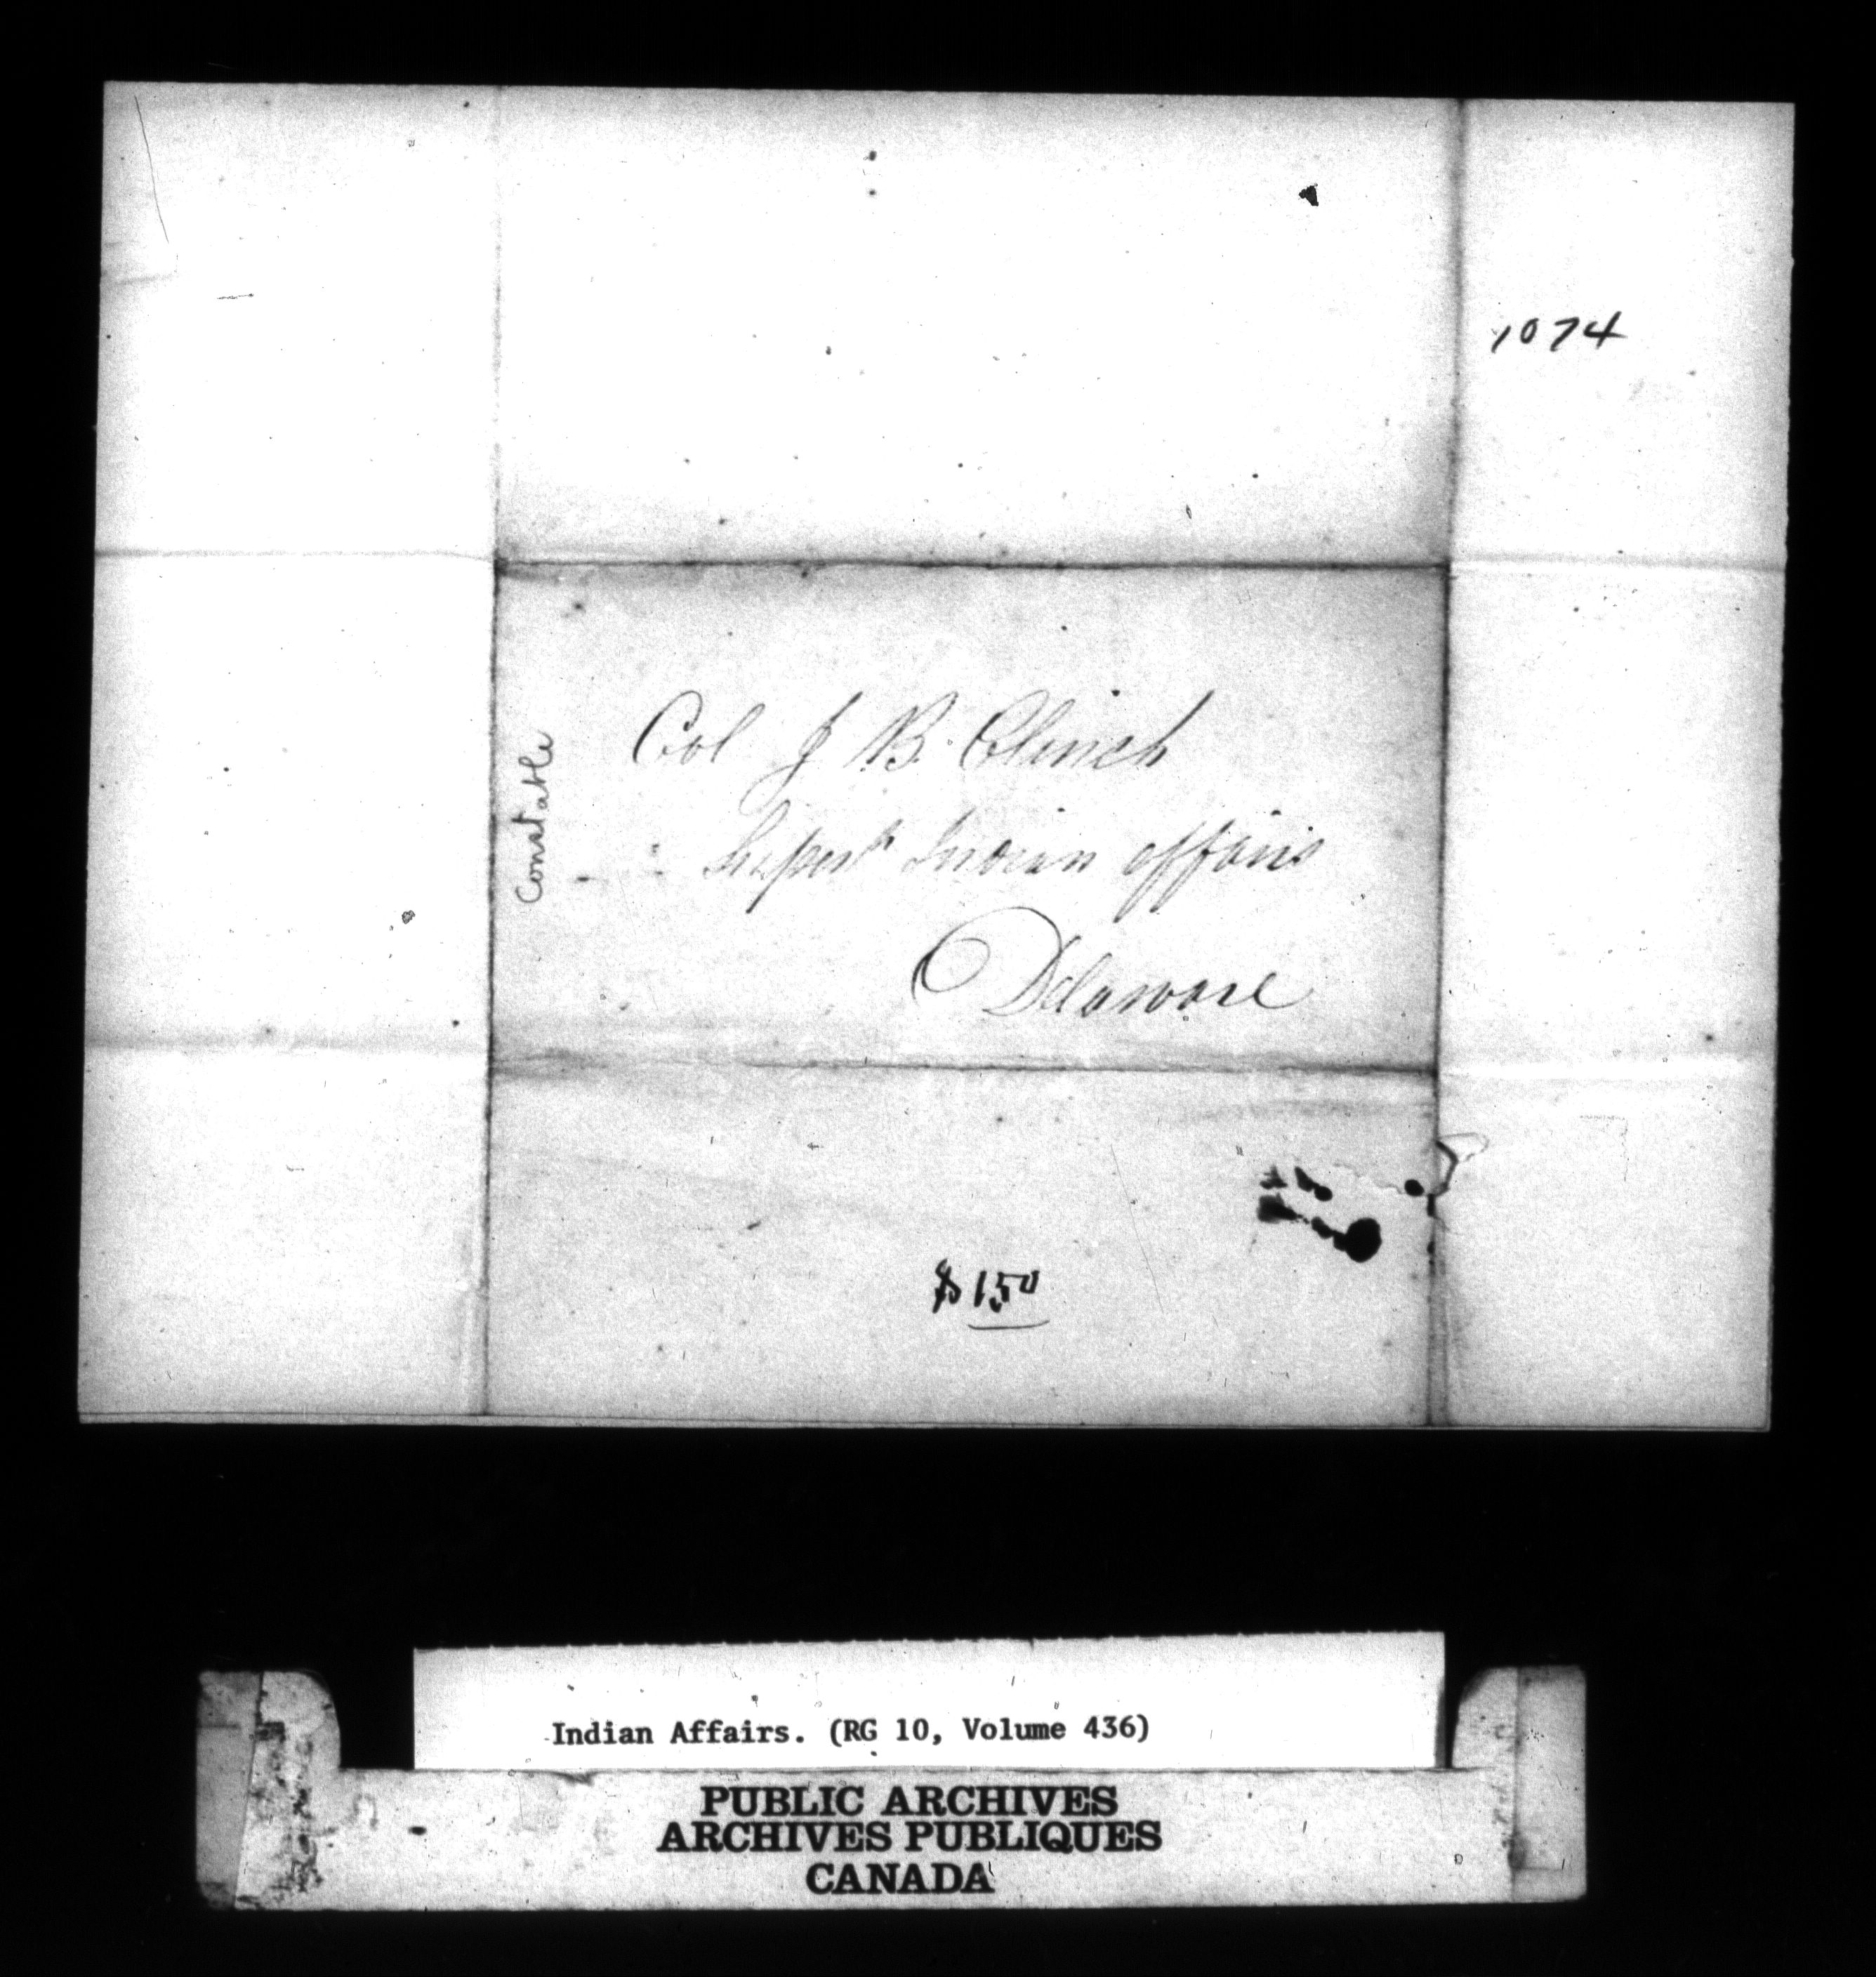 1074
Constable
Col J B. Clinch
Supert Indian affairs
Delaware
$150
Indian Affairs. (RG 10, Volume 436)
PUBLIC ARCHIVES
ARCHIVES PUBLIQUES
CANADA